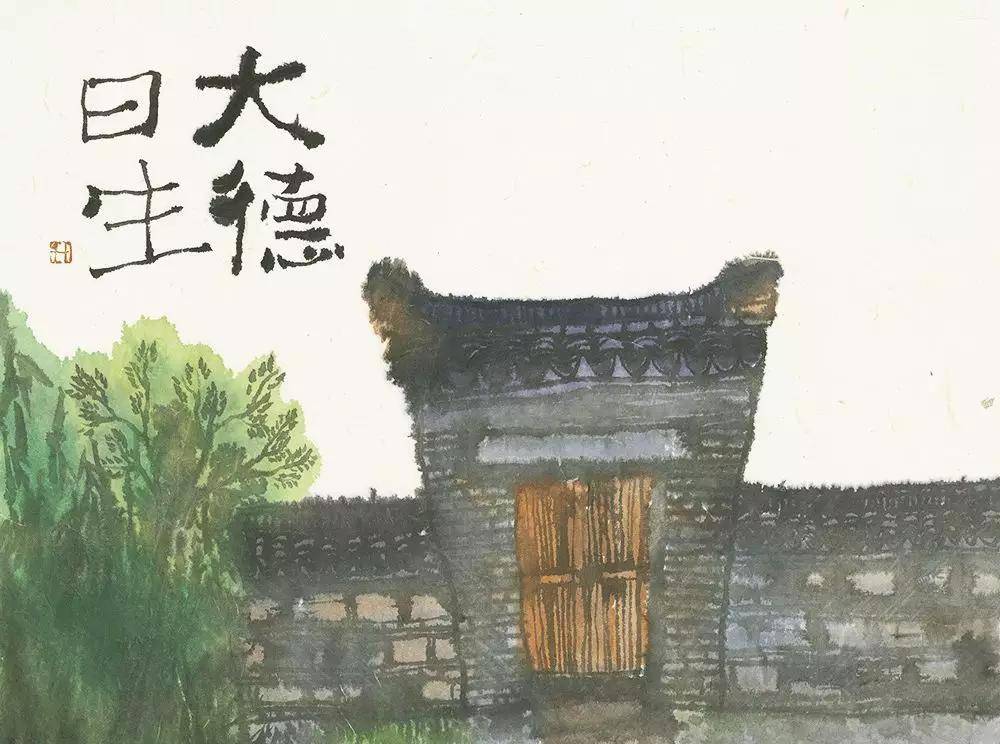 大德
曰生